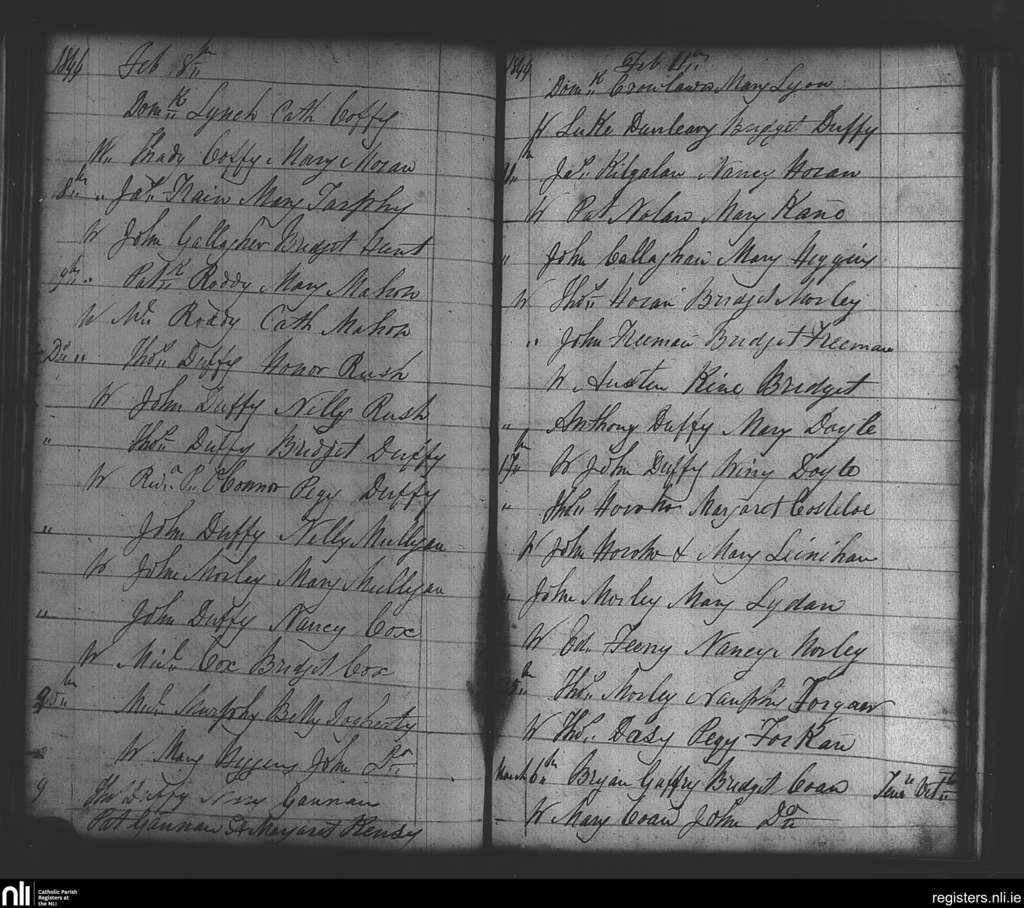 1844 Feb 8th
Domk Lynch Cath Coffy
W. Thady Coffy Mary Moran
8th " Jas. Frain Mary Tarphy
W John Gallagher Bridget Hunt
9th " Patk Roddy Mary Mahon
W Ml. Roddy Cath Mahon
Do " Thos. Duffy Honor Rush
W John Duffy Nelly Rush
" Thos. Duffy Bridget Duffy
W Revd. P. O'Connor Pegy Duffy
" John Duffy Nelly Mullygan
W John Morley Mary Mullygan
" John Duffy Nancy Cox
W Michl. Cox Bridget Cox
Michl. Murphy Belly Dogherty
W. Mary Higgens John Do
9 Ths Duffy Gannan
Pat Gannan & Margaret Kensy
1844 Feb 11th
Domk Mary Lyon
W Luke Dunleavy Bridget Duffy
Jas. Kilgalan Nancy Horan
W Pat Nolan Mary Kane
" John Callaghan Mary Higgins
W Thos. Horan Bridget Morley
" John Freeman Bridget Freeman
W Austin Kine Bridget
" Anthony Duffy Mary Doyle
W John Duffy Winy Doyle
" Thos. Margaret Costeloe
W John & Mary Leinihan
" John Morley Mary Lydan
W Ed. Feeny Nancy Morley
Thos. Morley
W Thos. Dasy Pegy Forkan
March 6th Bryan Gaffey Bridget Coan
W Mary Coan John Do
nli
Catholic Parish
Registers at
the NLI
registers.nli.ie